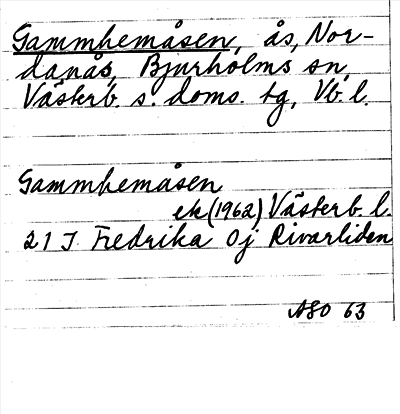 Gammhemåsen, ås, Nor-
danås, Bjurholms sn,
Västerb. s. doms. tg, Vb. l.
Gammhemåsen
ek (1962) Västerb. l.
21 J Fredrika Oj Rivarliden
ASO 63